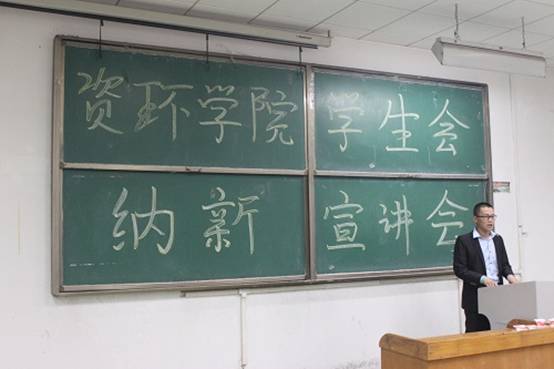 资环学院学生会
纳新宣讲会